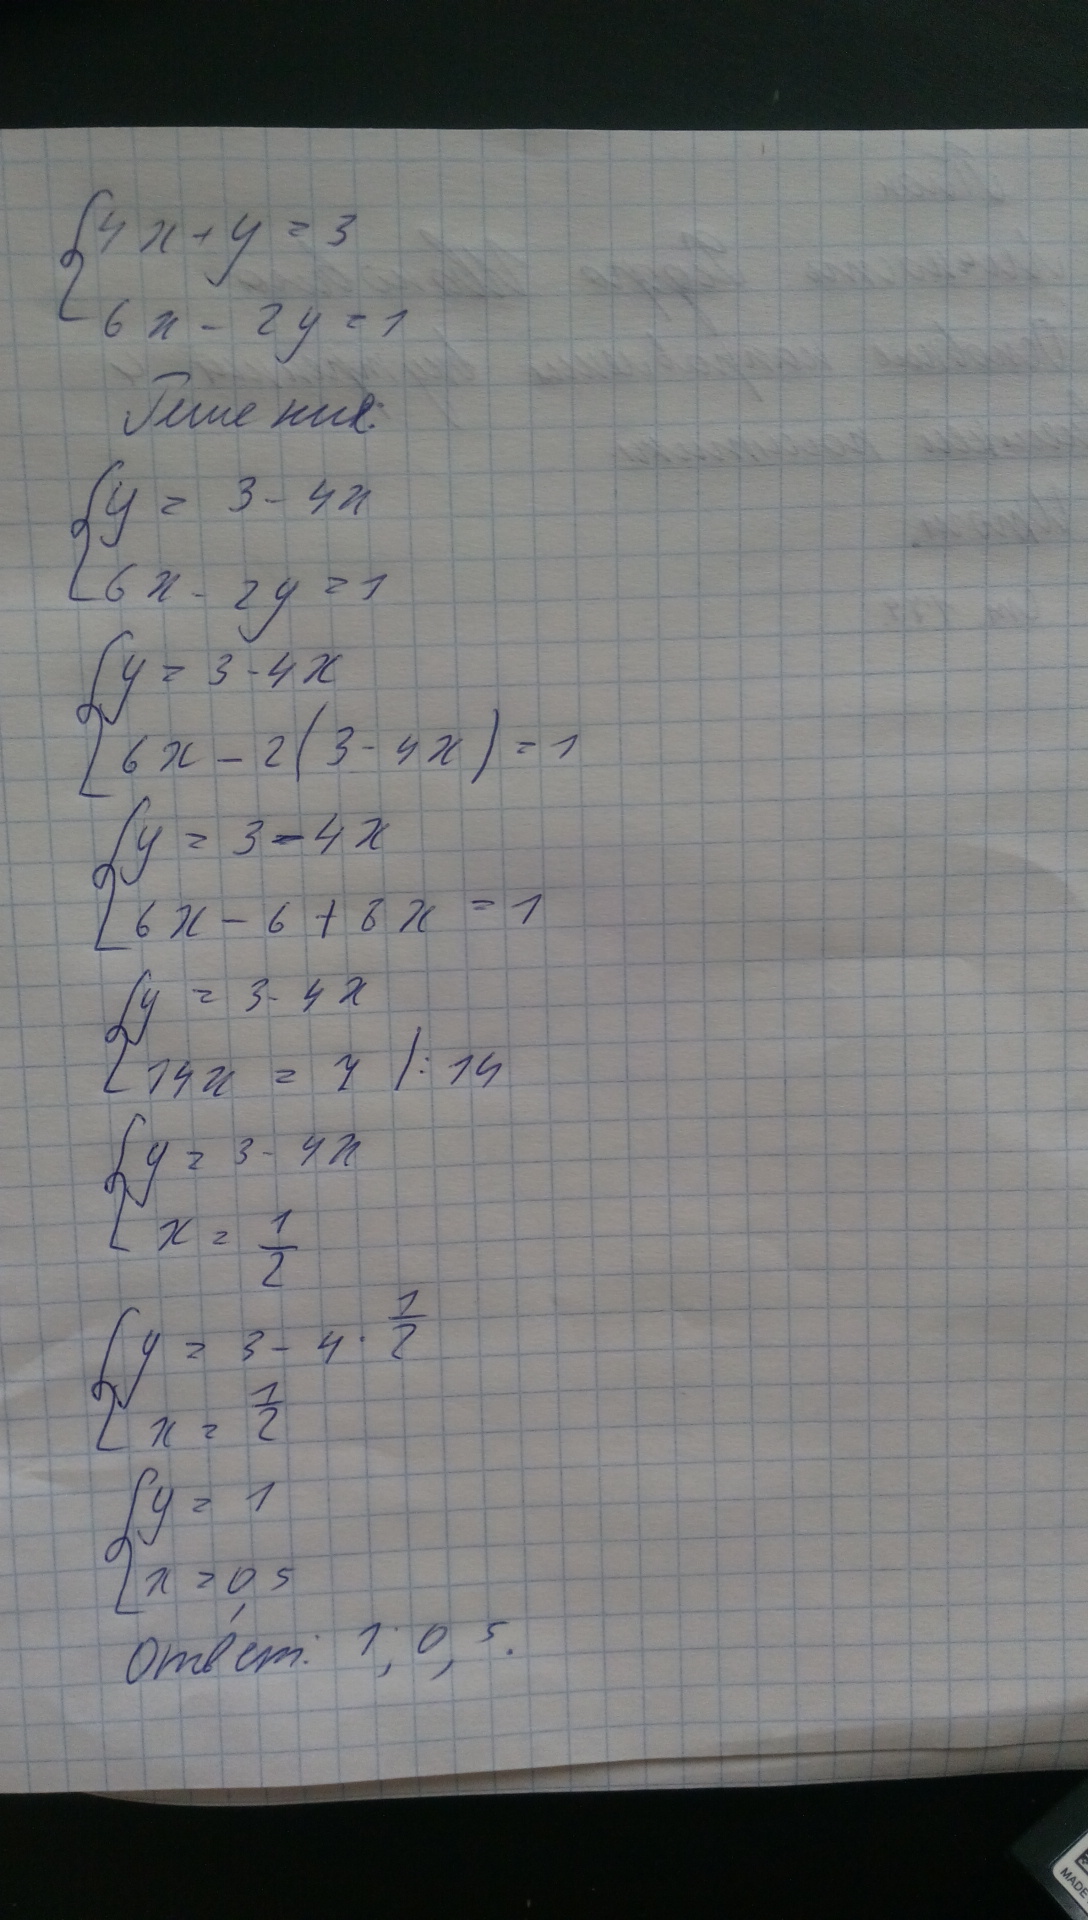 4x + y = 3
6x - 2y = 1
Решение:
y = 3 - 4x
6x - 2y = 1
y = 3 - 4x
6x - 2(3 - 4x) = 1
y = 3 - 4x
6x - 6 + 8x = 1
y = 3 - 4x
14x = 7 |: 14
y = 3 - 4x
x = 1/2
y = 3 - 4 · 1/2
x = 1/2
y = 1
x = 0,5
Ответ: 1; 0,5.
MADE